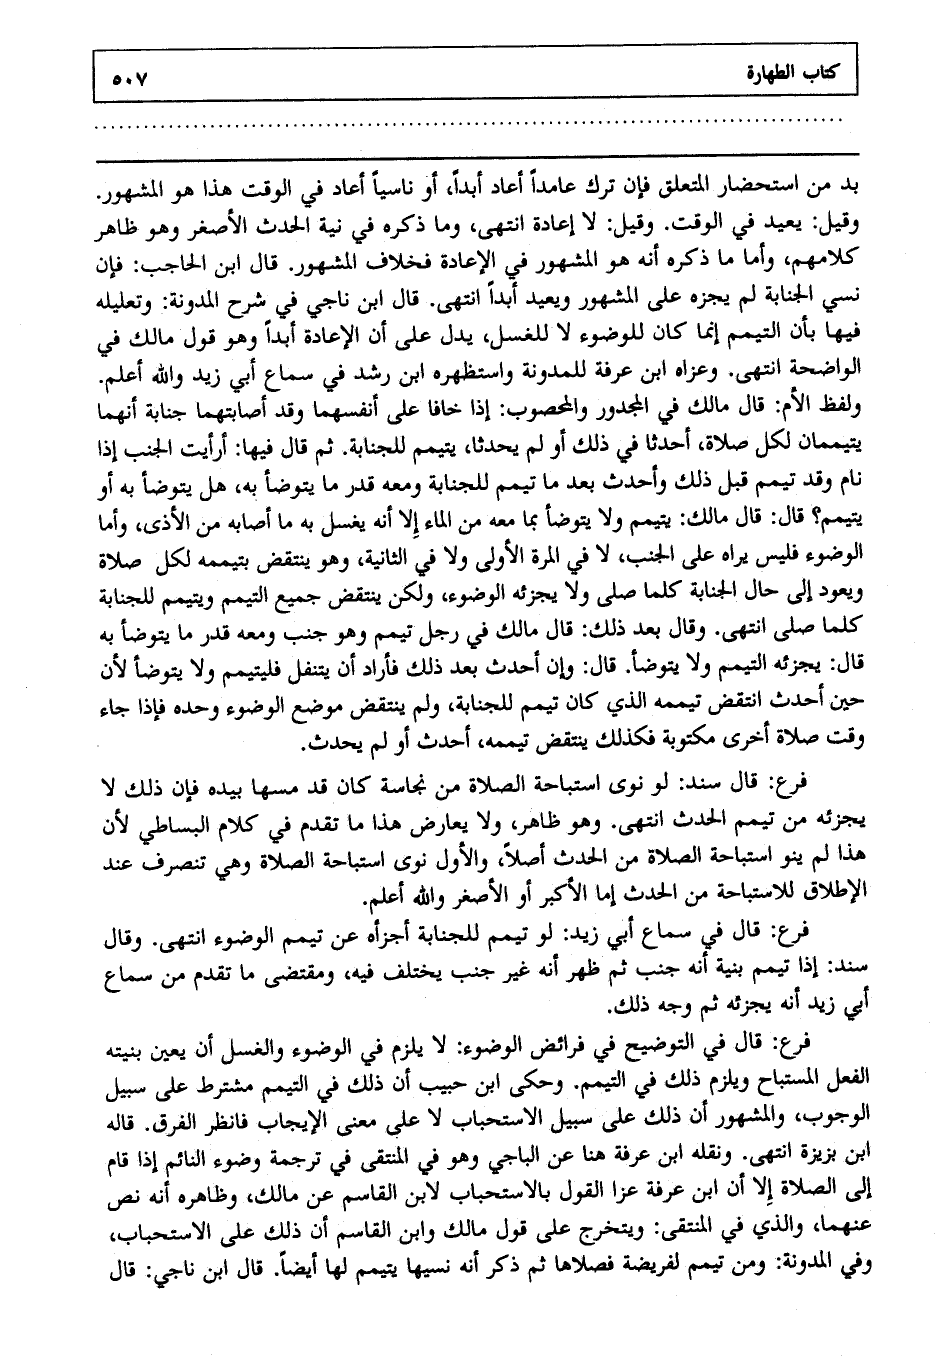 كتاب الطهارة ٥٠٧
بد من استحضار المتعلق فإن ترك عامداً أعاد أبداً، أو ناسياً أعاد في الوقت هذا هو المشهور.
وقيل: يعيد في الوقت. وقيل: لا إعادة انتهى، وما ذكره في نية الحدث الأصغر وهو ظاهر
كلامهم، وأما ما ذكره أنه هو المشهور في الإعادة فخلاف المشهور. قال ابن الحاجب: فإن
نسي الجنابة لم يجزه على المشهور ويعيد أبداً انتهى. قال ابن ناجي في شرح المدونة: وتعليله
فيها بأن التيمم إنما كان للوضوء لا للغسل، يدل على أن الإعادة أبداً وهو قول مالك في
الواضحة انتهى. وعزاه ابن عرفة للمدونة واستظهره ابن رشد في سماع أبي زيد والله أعلم.
ولفظ الأم: قال مالك في المجدور والمحصوب: إذا خافا على أنفسهما وقد أصابتهما جنابة أنهما
يتيممان لكل صلاة، أحدثا في ذلك أو لم يحدثا، يتيمم للجنابة. ثم قال فيها: أرأيت الجنب إذا
نام وقد تيمم قبل ذلك وأحدث بعد ما تيمم للجنابة ومعه قدر ما يتوضأ به، هل يتوضأ به أو
يتيمم؟ قال: قال مالك: يتيمم ولا يتوضأ بما معه من الماء إلا أنه يغسل به ما أصابه من الأذى، وأما
الوضوء فليس يراه على الجنب، لا في المرة الأولى ولا في الثانية، وهو ينتقض بتيممه لكل صلاة
ويعود إلى حال الجنابة كلما صلى ولا يجزئه الوضوء، ولكن ينتقض جميع التيمم ويتيمم للجنابة
كلما صلى انتهى. وقال بعد ذلك: قال مالك في رجل تيمم وهو جنب ومعه قدر ما يتوضأ به
قال: يجزئه التيمم ولا يتوضأ. قال: وإن أحدث بعد ذلك فأراد أن يتنفل فليتيمم ولا يتوضأ لأن
حين أحدث انتقض تيممه الذي كان تيمم للجنابة، ولم ينتقض موضع الوضوء وحده فإذا جاء
وقت صلاة أخرى مكتوبة فكذلك ينتقض تيممه، أحدث أو لم يحدث.
فرع: قال سند: لو نوى استباحة الصلاة من نجاسة كان قد مسها بيده فإن ذلك لا
يجزئه من تيمم الحدث انتهى. وهو ظاهر، ولا يعارض هذا ما تقدم في كلام البساطي لأن
هذا لم ينو استباحة الصلاة من الحدث أصلاً، والأول نوى استباحة الصلاة وهي تنصرف عند
الإطلاق للاستباحة من الحدث إما الأكبر أو الأصغر والله أعلم.
فرع: قال في سماع أبي زيد: لو تيمم للجنابة أجزأه عن تيمم الوضوء انتهى. وقال
سند: إذا تيمم بنية أنه جنب ثم ظهر أنه غير جنب يختلف فيه، ومقتضى ما تقدم من سماع
أبي زيد أنه يجزئه ثم وجه ذلك.
فرع: قال في التوضيح في فرائض الوضوء: لا يلزم في الوضوء والغسل أن يعين بنيته
الفعل المستباح ويلزم ذلك في التيمم. وحكى ابن حبيب أن ذلك في التيمم مشترط على سبيل
الوجوب، والمشهور أن ذلك على سبيل الاستحباب لا على معنى الإيجاب فانظر الفرق. قاله
ابن بزيزة انتهى. ونقله ابن عرفة هنا عن الباجي وهو في المنتقى في ترجمة وضوء النائم إذا قام
إلى الصلاة إلا أن ابن عرفة عزا القول بالاستحباب لابن القاسم عن مالك، وظاهره أنه نص
عنهما، والذي في المنتقى: ويتخرج على قول مالك وابن القاسم أن ذلك على الاستحباب،
وفي المدونة: ومن تيمم لفريضة فصلاها ثم ذكر أنه نسيها يتيمم لها أيضاً. قال ابن ناجي: قال